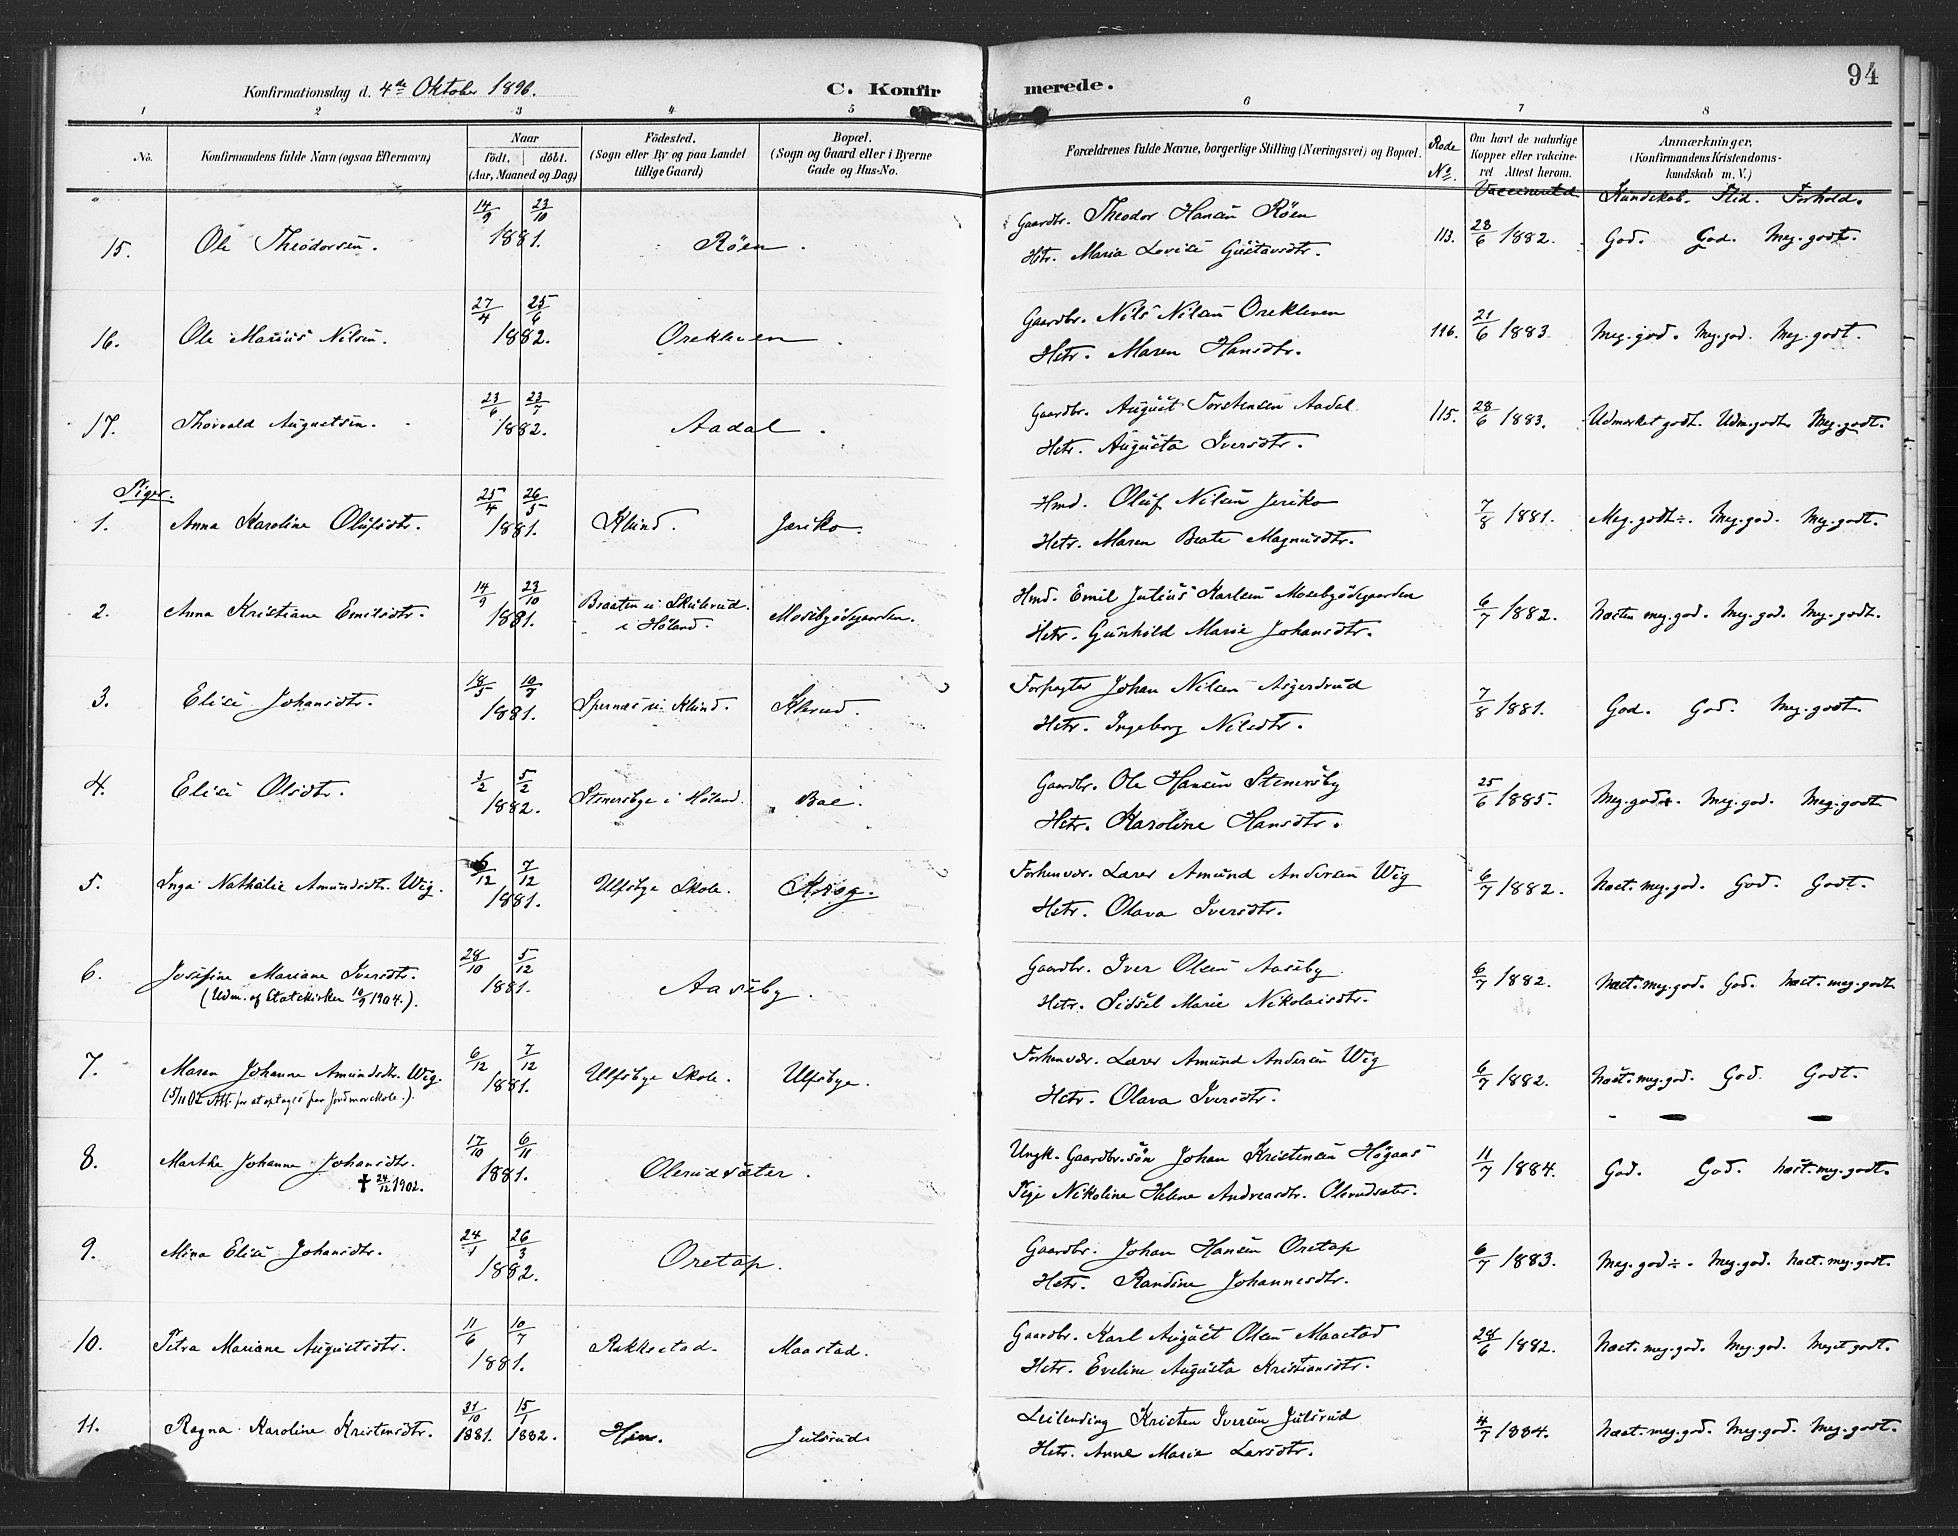 94
Konfirmationsdag d. 4de Oktober 1896.
C. Konfirmerede.
1 2 3 4 5 6 7 8
No. Konfirmandens fulde Navn (ogsaa Efternavn)
Naar
født. døbt.
(Aar, Maaned og Dag)
Fødested.
(Sogn eller By og paa Landet
tillige Gaard)
Bopæl.
(Sogn og Gaard eller i Byerne
Gade og Hus-No.
Forældrenes fulde Navne, borgerlige Stilling (Næringsvei) og Bopæl.
Rode
No.
Om havt de naturlige
Kopper eller vaccine-
ret Attest herom.
Anmærkninger,
(Konfirmandens Kristendoms-
kundskab m. V.)
Vaccinerede Kundskab. Flid. Forhold.
15. Ole Theodorsen. 14/9 23/10 1881. Röen.
Gaardbr. Theodor Hansen Röen
Hstr. Maria Lovise Gustavsdtr.
113. 28/6 1882. God. God. Meg. godt.
16. Ole Marius Nilsen. 27/4 25/6 1882. Orekleven.
Gaardbr. Nils Nilsen Orekleven
Hstr. Maren Hansdtr.
116. 21/6 1883. Meg. god. Meg. god. Meg. godt.
17. Thorvald Augustsen. 23/6 23/7 1882. Aadal.
Gaardbr. August Torstensen Aadal
Hstr. Augusta Iversdtr.
115. 28/6 1883. Udmerket godt. Udm. godt. Meg. godt.
Piger.
1. Anna Karoline Olufsdtr. 25/4 26/5 1881. Klund. Jeriko.
Hmd. Oluf Nilsen Jeriko
Hstr. Maren Beate Magnusdtr.
7/8 1881. Meg. godt÷. Meg. god. Meg. godt.
2. Anna Kristiane Emilsdtr. 14/9 23/10 1881. Braaten u. Skulerud. i Höland. Mosebyödegaarden.
Hmd. Emil Julius Karlsen Mosebyödegaarden
Hstr. Gunhild Marie Johansdtr.
6/7 1882. Næsten meg. god. Meg. god. Meg. godt.
3. Elise Johansdtr. 18/5 10/7 1881. Spernæs u. Klund. Klerud.
Forpagter Johan Nilsen Asgerdrud
Hstr. Ingeborg Nilsdtr.
7/8 1881. God. God. Meg. godt.
4. Elise Olsdtr. 3/2 5/2 1882. Stenersbye i Höland. Boe.
Gaardbr. Ole Hansen Stenersby
Hstr. Karoline Hansdtr.
25/6 1885. Meg. god+. Meg. god. Meg. godt
5. Inga Nathalie Amundsdtr. Wig. 6/12 7/12 1881. Ulfsbye Skole. Krog.
Forhenvær. Lærer Amund Andersen Wig
Hstr. Olava Iversdtr.
6/7 1882. Næst. meg. god. God. Godt.
6. Josefine Mariane Iversdtr. 28/10 5/12 1881. Aaseby.
(Udm. af Statskirken 10/9 1904.).
Gaardbr. Iver Olsen Aaseby
Hstr. Sidsel Marie Nikolaisdtr.
6/7 1882. Næst. meg. god. God. Næst. meg. godt
7. Maren Johanne Amundsdtr. Wig. 6/12 7/12 1881. Ulfsbye Skole. Ulfsbye.
(5/11 02 Att. for at optages paa Jordmorskole.).
Forhenvær. Lærer Amund Andersen Wig
Hstr. Olava Iversdtr.
6/7 1882. Næst. meg. god. God. Godt.
8. Marthe Johanne Johansdtr. 17/10 6/11 1881. Olerudsæter.
✝ 24/12 1902.
Ungk. Gaardbr.sön Johan Kristensen Högaas
Pige Nikoline Helene Andreasdtr. Olerudsæter.
11/7 1884. God. God. Næst. meg. godt.
9. Mina Elise Johansdtr. 24/1 26/3 1882. Oretop.
Gaardbr. Johan Hansen Oretop
Hstr. Randine Johannesdtr.
6/7 1883. Meg. god÷. Meg. god. Næst. meg. godt.
10. Petra Mariane Augustsdtr. 11/6 10/7 1881. Rakkestad. Maastad.
Gaardbr. Karl August Olsen Maastad
Hstr. Eveline Augusta Kristiansdtr.
28/6 1882. Næst. meg. god. Meg. god. Meget godt.
11. Ragna Karoline Kristensdtr. 31/10 1881. 15/1 1882. Hen. Julsrud.
Leilending Kristen Iversen Julsrud
Hstr. Anne Marie Larsdtr.
4/7 1884. Næst. meg. god. Meg. god. Meg. godt.